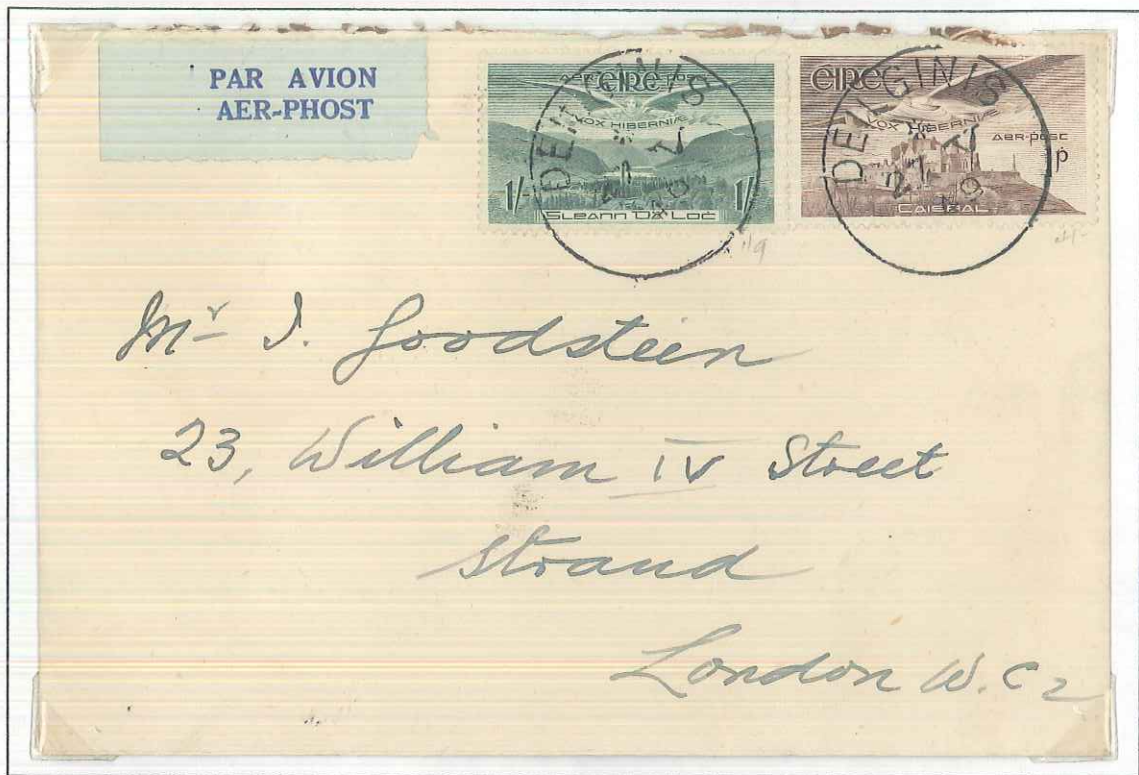 PAR AVION
AER-PHOST
ÉIRE
VOX HIBERNIÆ
1/- 1/-
GLEANN DÁ LOĊ
ÉIRE
VOX HIBERNIÆ
AER-ṗOST
1ṗ
CAISEAL
DEILGINIS
27 V 49
DEILGINIS
27 V 49
Mr I. Goodstein
23, William IV Street
Strand
London W.C 2